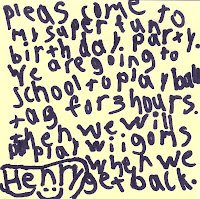 pleas come to
my super fun
birthday. party.
we are going to
school to play
tag for 3 hours.
then we will
play wii goms
when we
Henry get back.